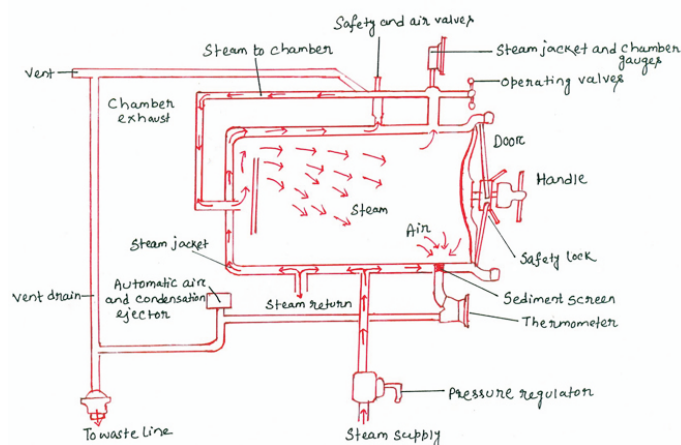 Safety and air valves
Steam to chamber
Steam jacket and chamber
gauges
Vent
Operating valves
Chamber
exhaust
Door
Handle
Steam
Air
Steam jacket
Safety lock
Automatic air
and condensation
ejector
Vent drain
Steam return
Sediment screen
Thermometer
Pressure regulator
To waste line
Steam supply